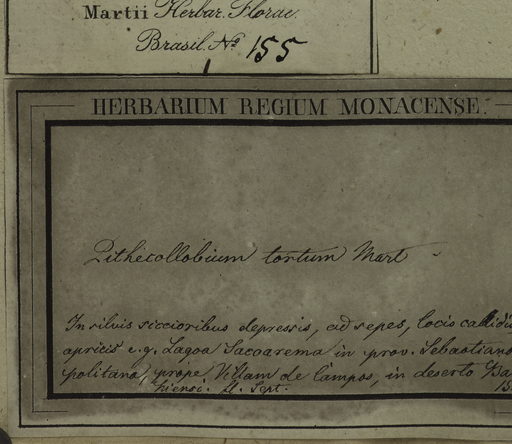 Martii Herbar. Florae
Brasil. No 155
HERBARIUM REGIUM MONACENSE.
Pithecollobium tortum Mart
In silvis siccioribus depressis, ad sepes, locis callidis
apricis e.g. Lagoa Sacoarema in prov. Sebastiano
politana, prope Villam de Campos, in deserto Ba
hiensi. fl. Sept.